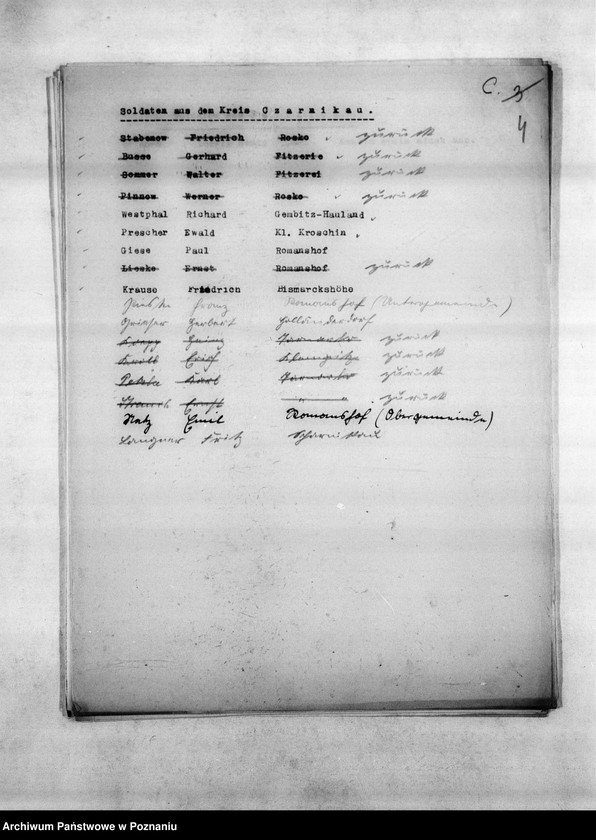 C. 3
4
Soldaten aus dem Kreis Czarnikau.
Stabenow Friedrich Rosko zurück
Busse Gerhard Fitzerie zurück
Sommer Walter Fitzerei zurück
Pinnow Werner Rosko zurück
Westphal Richard Gembitz-Hauland
Prescher Ewald Kl. Kroschin
Giese Paul Romanshof
Lieske Ernst Romanshof zurück
Krause Friedrich Bismarckshöhe
Franz Romanshof (Untergemeinde)
Herbert Holländerdorf
Heinz zurück
Erich zurück
Karl zurück
Ernst " " zurück
Netz Emil Romanshof (Obergemeinde)
Langner Fritz
Archiwum Państwowe w Poznaniu